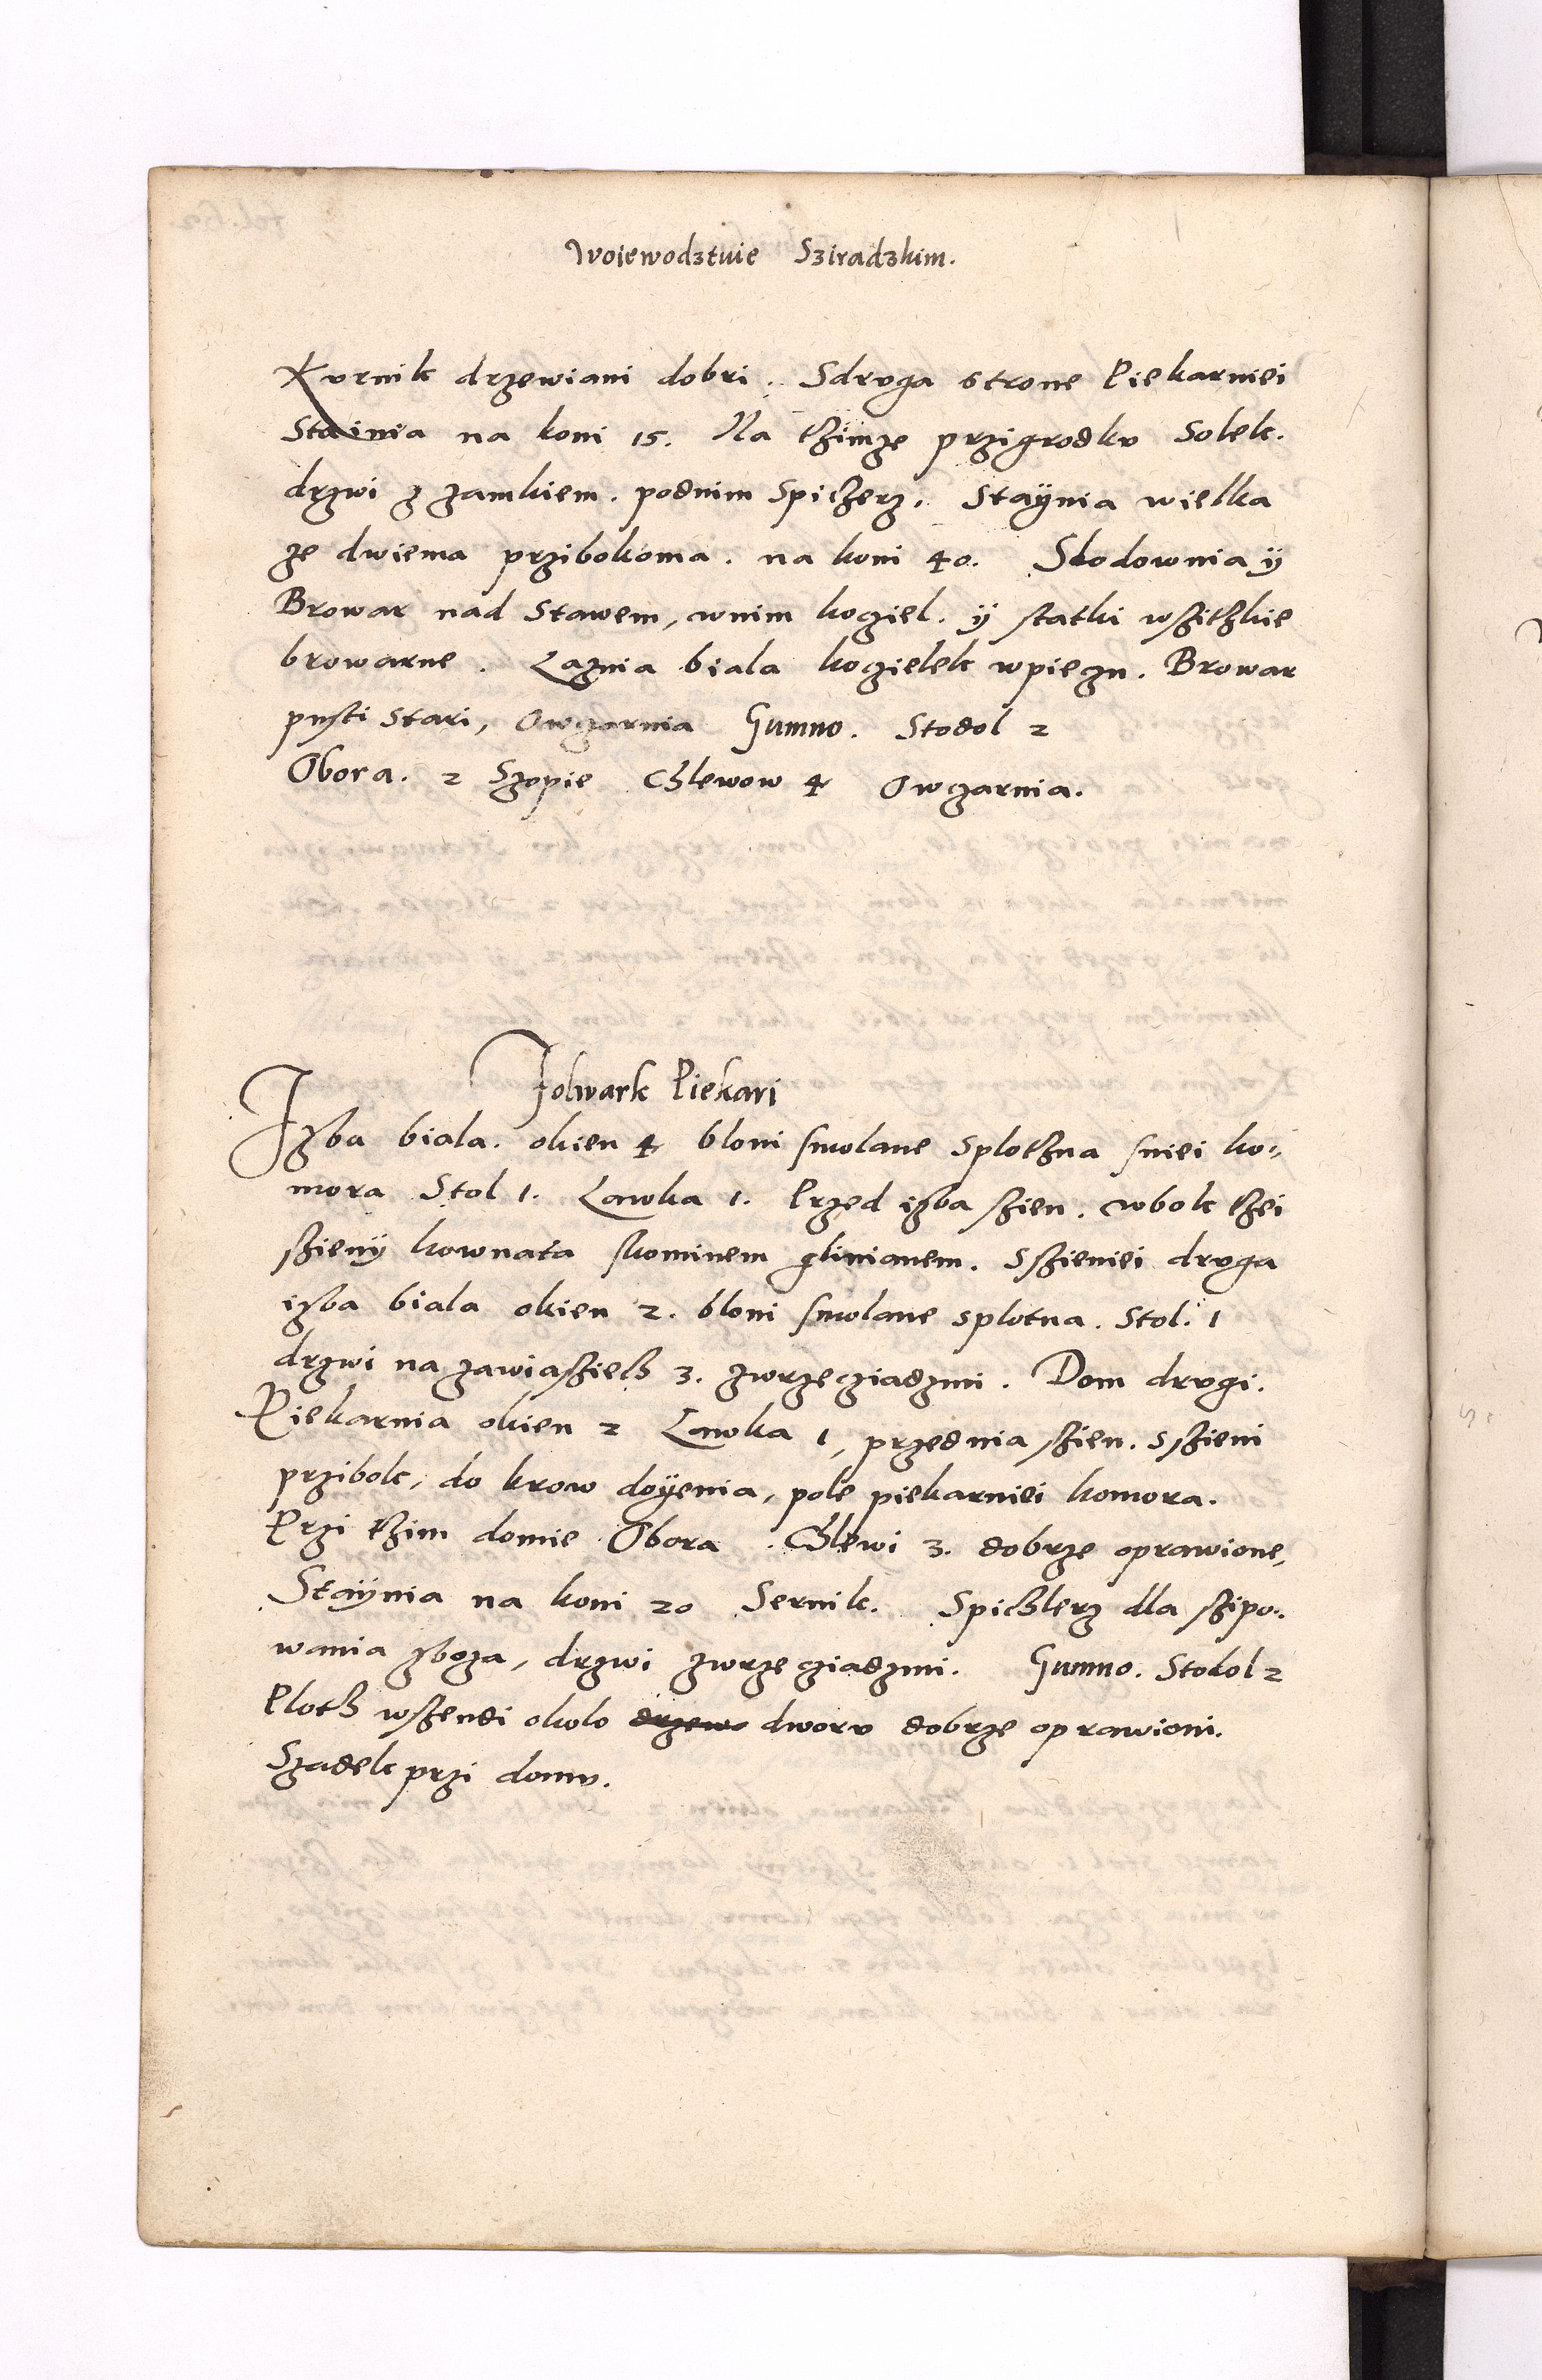 Woiewodztwie Sziradzkim.
Kurnik drzewiani dobri. Sdruga strone Piekarniei
Stainia na koni 15. Na thimze przigrodku Solek.
drzwi z zamkiem. podnim Spiżerz. Staÿnia wielka
ze dwiema przibokoma. na koni 40. Słodownia ÿ
Browar nad Stawem, wnim kocziel. ÿ statki wszitzkie
browarne. Łaznia biala koczielek wpieczu. Browar
pusti Stari, Owczarnia Gumno. Stodol 2
Obora. 2 Szopie Chlewow 4 Owczarnia.
Folwark Piekari
Izba biala. okien 4 bloni smolane splothna sniei ko-
mora Stol 1. Lawka 1. Przed izba szien. wbok thei
szienÿ kownata skominem glinianem. Sszieniei druga
izba biala okien 2. bloni smolane splotna. Stol. 1
drzwi na zawiaszich 3. zwrzecziadzmi. Dom drugi.
Piekarnia okien 2 Lawka 1, przednia szien. sszieni
przibok, do krow doÿenia, pole piekarniei komora.
Przi thim domie Obora. Chlewi 3. dobrze oprawione,
Staÿnia na koni 20 Sernik. Spichlerz dla szipo-
wania zboza, drzwi zwrzecziadzmi. Gumno. Stodol 2
Ploth wszendi okolo drzewo dworu dobrze oprawioni.
Szadek przi domu.